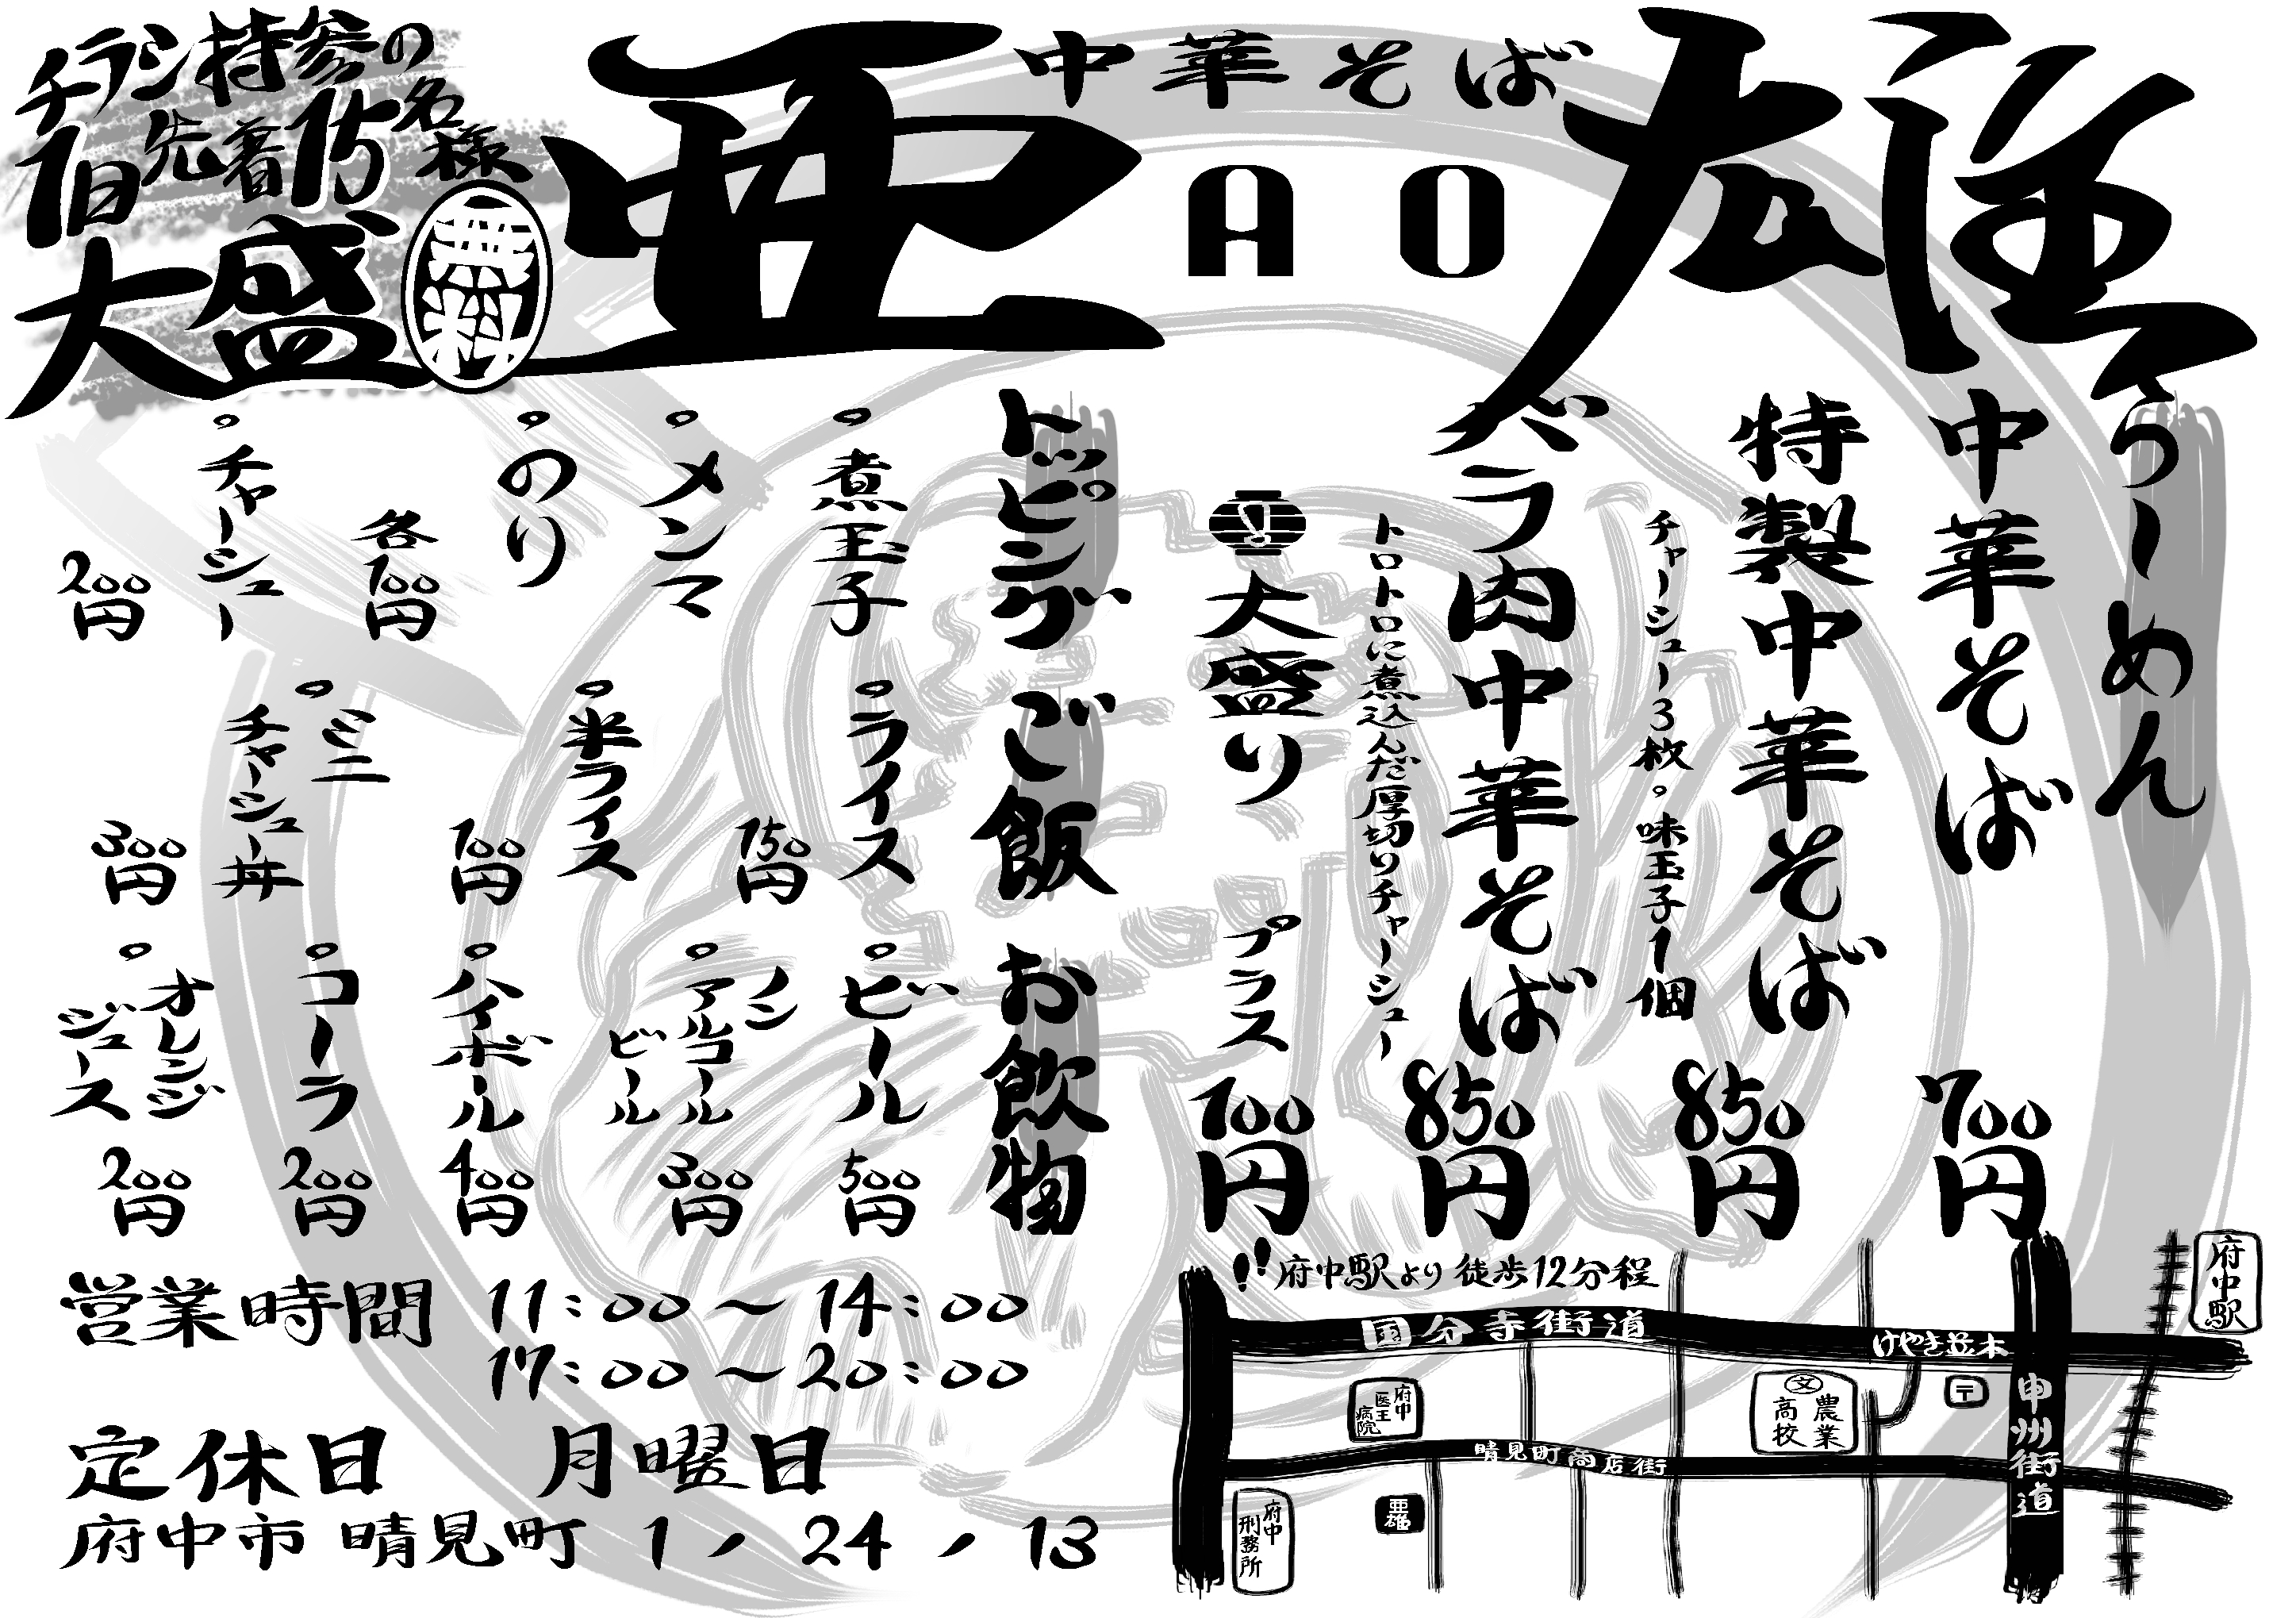 チラシ持参の
1日先着15名様
大盛無料
中華そば
亜雄
AO
らーめん
中華そば 700円
特製中華そば 850円
チャーシュー3枚。味玉子1個
バラ肉中華そば 850円
トロトロに煮込んだ厚切りチャーシュー
大盛り プラス 100円
トッピング
。煮玉子
。メンマ
。のり
各100円
。チャーシュー 200円
ご飯
。ライス 150円
。半ライス 100円
。ミニチャーシュー丼 300円
お飲物
。ビール 500円
。ノンアルコールビール 300円
。ハイボール 400円
。コーラ 200円
。オレンジジュース 200円
営業時間 11:00〜14:00
17:00〜20:00
定休日 月曜日
府中市 晴見町 1/24/13
!!府中駅より徒歩12分程
府中駅
国分寺街道
けやき並木
甲州街道
〒
文
農業高校
府中医王病院
晴見町商店街
亜雄
府中刑務所